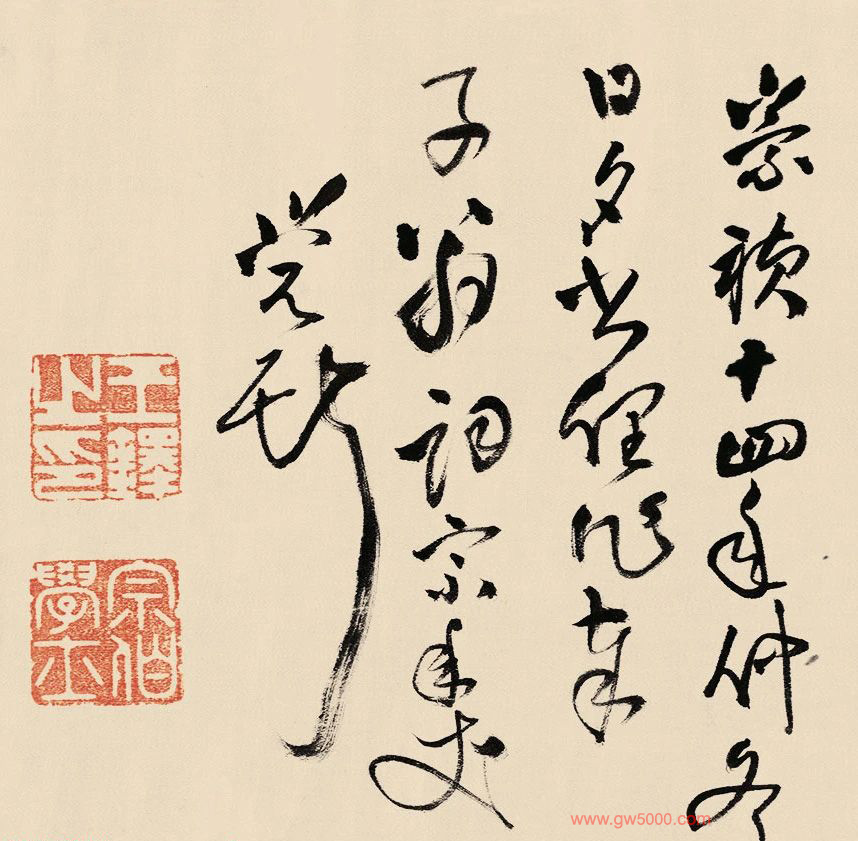 崇禎十四年仲冬
日夕書俚作奉
子翁詞宗年丈
覺斯
王鐸之印
宗伯學士
www.gw5000.com